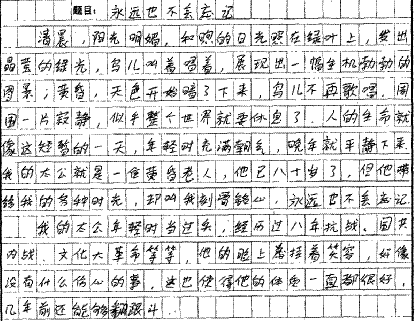 题目：永远也不会忘记
清晨，阳光明媚，和煦的日光照在绿叶上，发出
晶莹的绿光，鸟儿叫着唱着，展现出一幅生机勃勃的
图景；黄昏，天色开始暗了下来，鸟儿不再歌唱，周
围一片寂静，似乎整个世界就要休息了。人的生命就
像这短暂的一天，年轻时充满朝气，晚年就平静下来
我的太公就是一位老人，他已八十岁了，但他带
给我的各种时光，却叫我刻骨铭心，永远也不会忘记
我的太公年轻时当过兵，经历过八年抗战、国共
内战、文化大革命等等，他的脸上总挂着笑容，好像
没有什么伤心的事，这也使得他的体质一直都很好，
几年前还能够翻跟斗